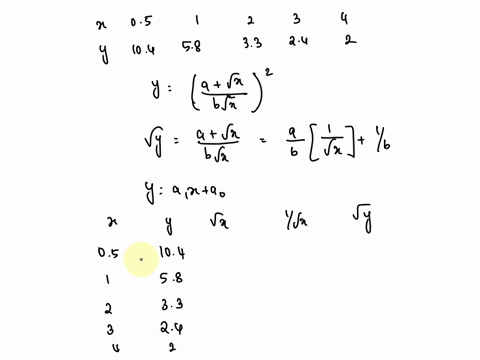 x 0.5 1 2 3 4
y 10.4 5.8 3.3 2.4 2
y = ((a + √x) / (b√x))²
√y = (a + √x) / (b√x) = a/b [1/√x] + 1/b
y = a₁x + a₀
x y √x 1/√x √y
0.5 10.4
1 5.8
2 3.3
3 2.4
4 2